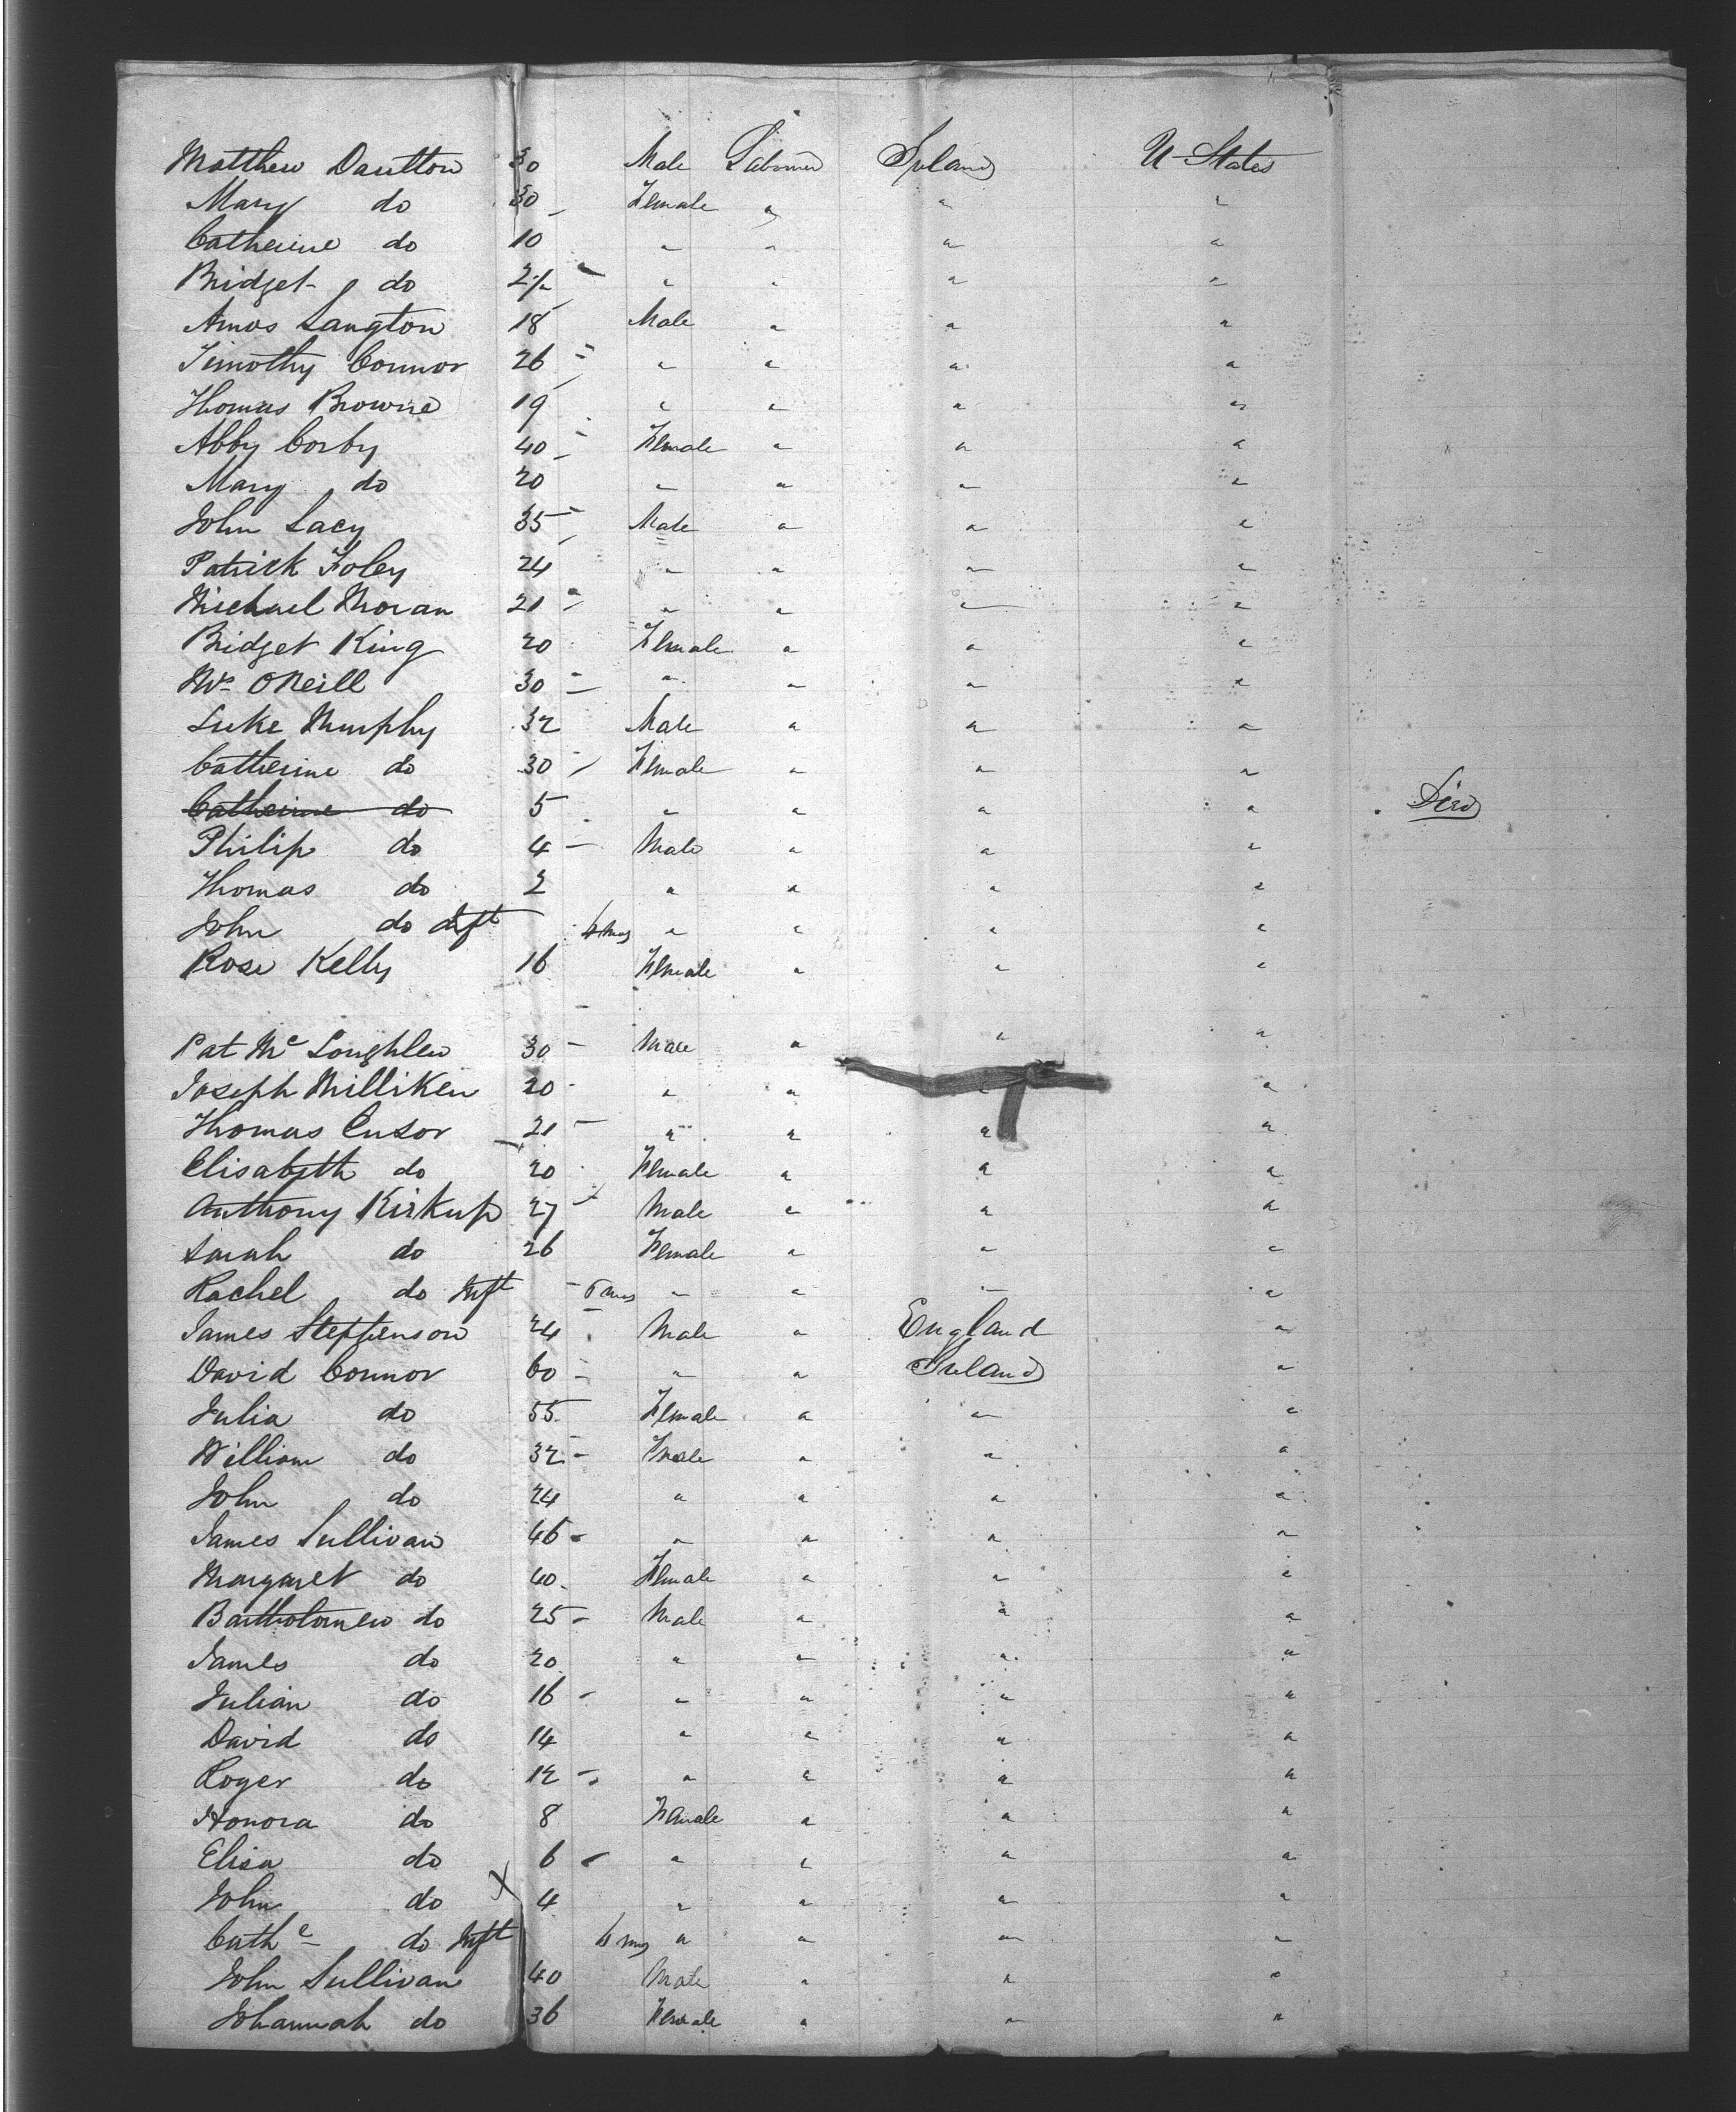 Matthew Daulton 30 Male Labourer Ireland U States
Mary do 30 Female " " "
Catherine do 10 " " " "
Bridget do 2½ " " " "
Amos Langton 18 Male " " "
Timothy Connor 26 " " " "
Thomas Browne 19 " " " "
Abby Corby 40 Female " " "
Mary do 20 " " " "
John Lacy 35 Male " " "
Patrick Foley 24 " " " "
Michael Moran 21 " " " "
Bridget King 20 Female " " "
Mrs O Neill 30 " " " "
Luke Murphy 32 Male " " "
Catherine do 30 Female " " "
Catherine do 5 " " " " Died
Philip do 4 Male " " "
Thomas do 2 " " " "
John do Inft 6 mos " " " "
Rose Kelly 16 Female " " "
Pat Mc Loughlen 30 Male " " "
Joseph Milliken 20 " " " "
Thomas Cusor 21 " " " "
Elisabeth do 20 Female " " "
Anthony Kirkup 27 Male " " "
Sarah do 26 Female " " "
Rachel do Inft 6 mos " " " "
James Stephenson 24 Male " England "
David Connor 60 " " Ireland "
Julia do 55 Female " " "
William do 32 Male " " "
John do 24 " " " "
James Sullivan 46 " " " "
Margaret do 40 Female " " "
Bartholomew do 25 Male " " "
James do 20 " " " "
Julian do 16 " " " "
David do 14 " " " "
Roger do 12 " " " "
Honora do 8 Female " " "
Elisa do 6 " " " "
John do X 4 " " " "
Cathe do Inft 6 mos " " " "
John Sullivan 40 Male " " "
Johannah do 36 Female " " "